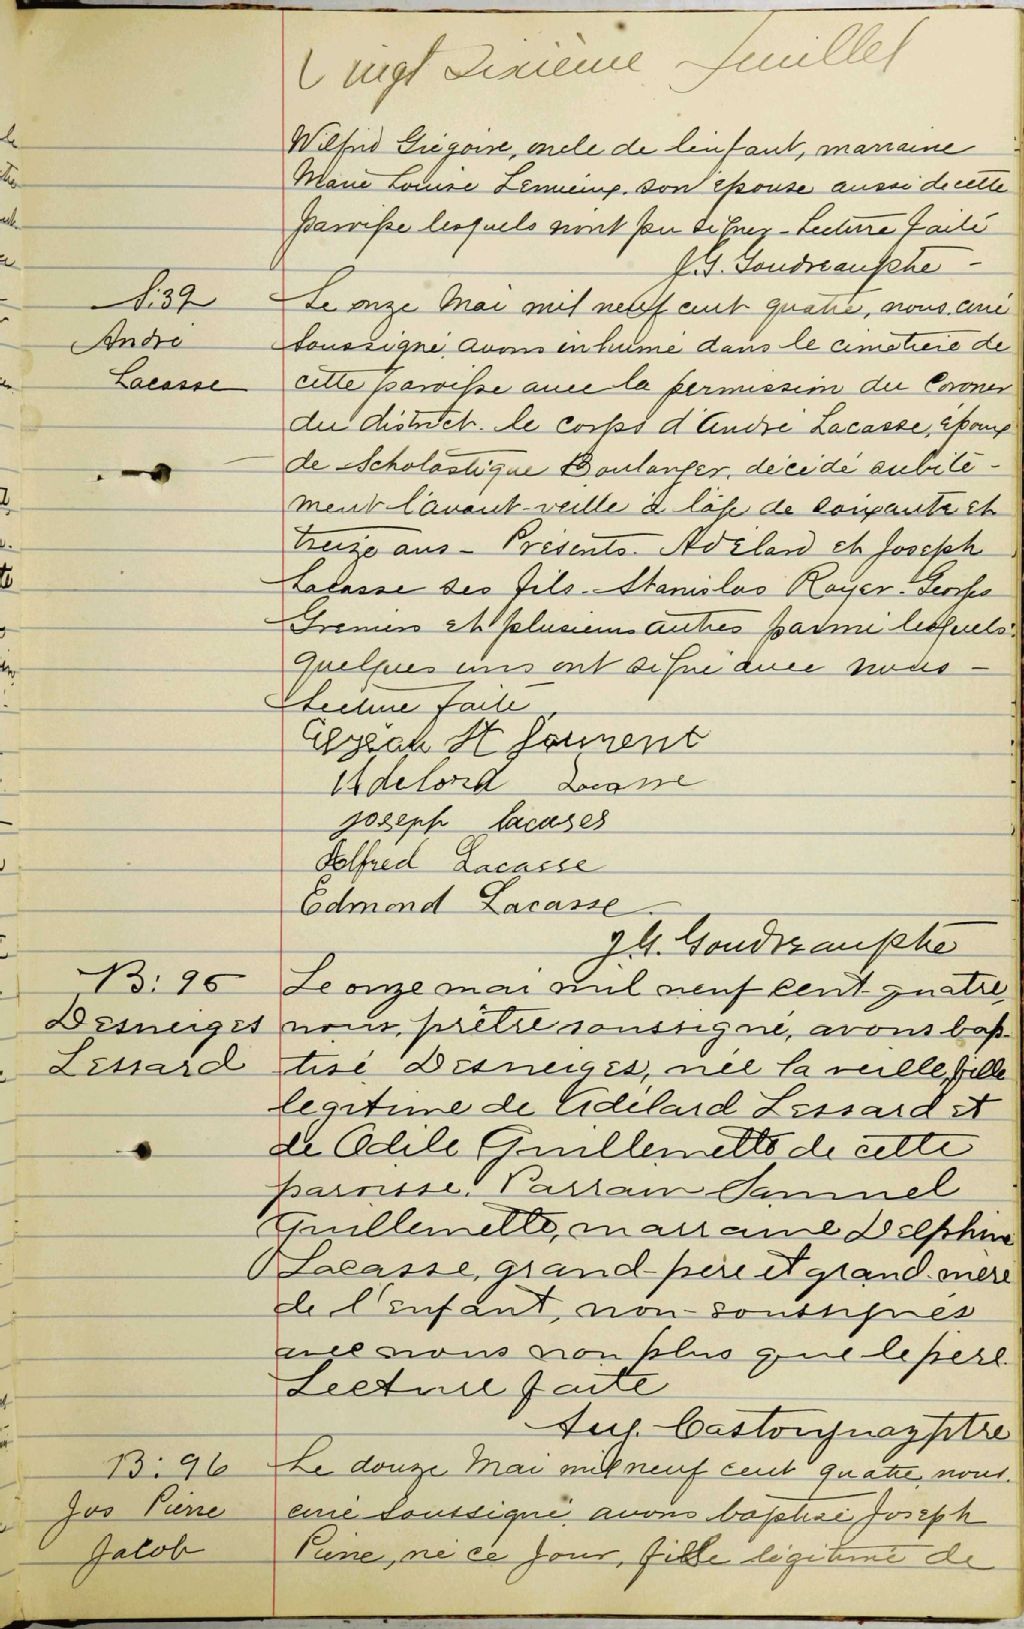 Vingt sixième feuillet
Wilfrid Grégoire, oncle de l'enfant, marraine
Marie Louise Lemieux. son épouse aussi de cette
paroisse lesquels n'ont pu signer - Lecture faite
J.G. Goudreau ptre -
S: 39
André
Lacasse
Le onze Mai mil neuf cent quatre, nous curé
soussigné, avons inhumé dans le cimetière de
cette paroisse avec la permission du Coroner
du district. le corps d'André Lacasse, époux
de Scholastique Boulanger, décédé subite-
ment l'avant-veille à l'âge de soixante et
treize ans - Présents. Adélard et Joseph
Lacasse ses fils - Stanislas Royer - Georges
Grenier et plusieurs autres parmi lesquels
quelques uns ont signé avec nous -
Lecture faite.
St Laurent
Adelord Lacasse
joseph lacases
Alfred Lacasse
Edmond Lacasse
J.G. Goudreau ptre
B: 95
Desneiges
Lessard
Le onze mai mil neuf cent quatre,
nous, prêtre soussigné, avons bap-
tisé Desneiges, née la veille, fille
legitime de Adélard Lessard et
de Odile Guillemette de cette
paroisse. Parrain Samuel
Guillemette, marraine Delphine
Lacasse, grand-père et grand-mère
de l'enfant, non-soussignés
avec nous non plus que le père.
Lecture faite
Aug. Castonguay ptre
B: 96
Jos Pierre
Jacob
Le douze Mai mil neuf cent quatre, nous.
curé soussigné, avons baptisé Joseph
Pierre, né ce jour, fills légitime de